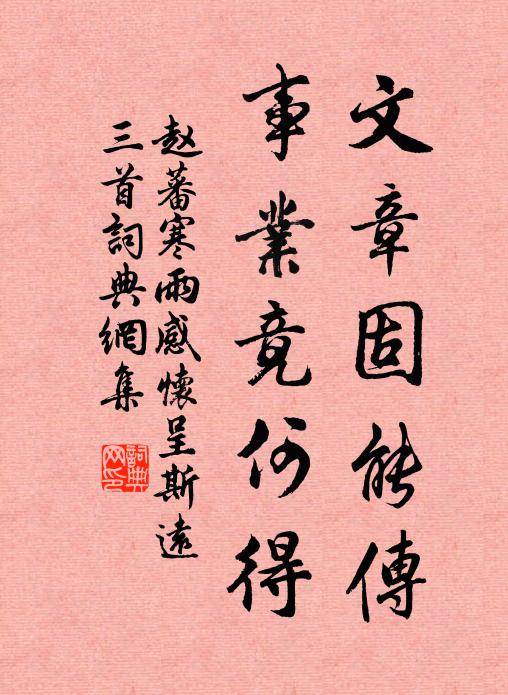 文章固能傳
事業竟何得
赵蕃寒雨感懷呈斯遠
三首詞典網集
詞典網印